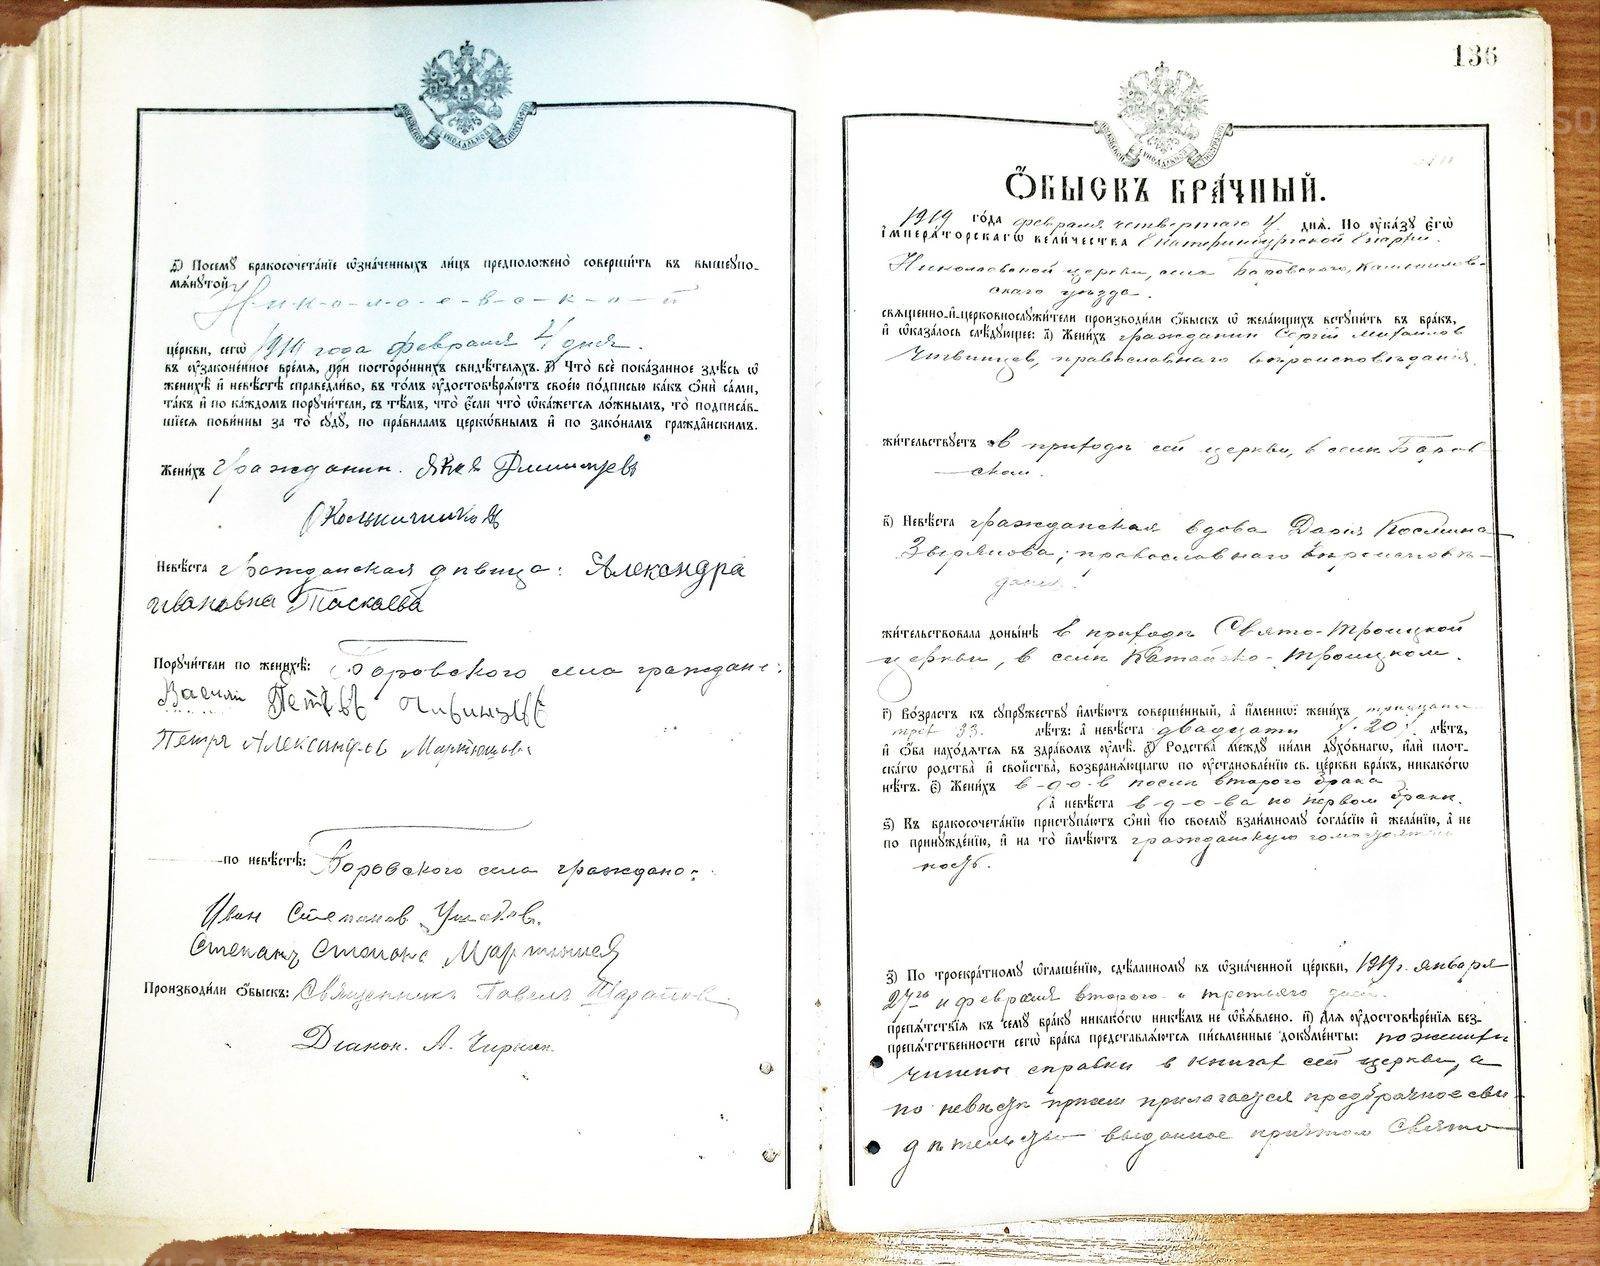 МОСКОВСКОЙ СУНОДАЛЬНОЙ ТИПОГРАФІИ
з҃) Посемꙋ бракосочета́нїе ѡзна́ченныхъ ли́цъ предположено̀ соверши́ть въ вышеꙋпо-
мѧ́нꙋтой
Н-и-к-о-л-а-е-в-с-к-о-й
це́ркви, сегѡ̀ 1919 года февраля 4 дня.
въ ᲂу҆зако́ненное вре́мѧ, при посторо́ннихъ свидѣ́телѧхъ. Что̀ всѐ пока́занное здѣ́сь ѡ҆
женихѣ̀ и҆ невѣ́стѣ справедли́во, въ то́мъ ᲂу҆достовѣрѧ́ютъ свое́ю по́дписью ка́къ ѻ҆нѝ са́ми,
та́къ и҆ по ка́ждомъ порꙋчи́тели, съ тѣ́мъ, что̀ є҆́сли что̀ ѡ҆ка́жетсѧ ло́жнымъ, то̀ подписа́в-
шїесѧ пови́нны за то̀ сꙋдꙋ̀, по пра́виламъ церко́внымъ и҆ по зако́намъ гражда́нскимъ.
Жени́хъ гражданин. Яков Дмитриев
Невѣ́ста гражданская дѣвица: Александра
Ивановна Таскаева
Порꙋчи́тели по женихѣ̀: Боровского села граждане:
Василий Петров
Петр Александров Мартюшов
—по невѣ́стѣ: Боровского села граждане:
Иван Степанов Ушаков.
Степанъ
Производи́ли ѻ҆́быскъ: Священникъ Павелъ
Діакон. А.
136
МОСКОВСКОЙ СУНОДАЛЬНОЙ ТИПОГРАФІИ
Ѻ҆́БЫСКЪ БРА́ЧНЫЙ.
1919 го́да февраля четвертаго 4 днѧ̀. По ᲂу҆ка́зꙋ є҆гѡ̀
і҆мпера́торскагѡ вели́чества Екатеринбургской Епархіи.
Николаевской церкви, села Боровского, Камышлов-
скаго уѣзда.
свѧще́нно-и҆-церковнослꙋжи́тели производи́ли ѻ҆́быскъ ѡ҆ жела́ющихъ встꙋпи́ть въ бра́къ,
и҆ ѡ҆каза́лось слѣ́дꙋющее: а҃) Жени́хъ гражданин Сергій Михаилов
православнаго вѣроисповѣданія.
жи́тельствꙋетъ в приходѣ сей церкви, в селѣ Боров-
ском.
в҃) Невѣ́ста гражданская вдова Дарія Космина
Зырянова; православнаго вѣроисповѣ-
данія.
жи́тельствовала доны́нѣ в приходѣ Свято-Троицкой
церкви, в селѣ Катайско-Троицком.
г҃) Во́зрастъ къ сꙋпрꙋ́жествꙋ и҆мѣ́ютъ соверше́нный, а҆ и҆́меннѡ: жени́хъ тридцати
трех 33. лѣ́тъ: а҆ невѣ́ста двадцати 20 лѣ́тъ,
и҆ ѻ҆́ба нахо́дѧтсѧ въ здра́вомъ ᲂу҆мѣ̀. д҃) Родства̀ ме́ждꙋ ни́ми дꙋхо́внагѡ, и҆лѝ плот-
ска́гѡ родства̀ и҆ свойства̀, возбранѧ́ющагѡ по ᲂу҆становле́нїю св. це́ркви бра́къ, никако́гѡ
нѣ́тъ. є҃) Жени́хъ в-до-в послѣ второго брака
а҆ невѣ́ста в-д-о-ва по первом бракѣ.
ѕ҃) Къ бракосочета́нїю пристꙋпа́ютъ ѻ҆нѝ по своемꙋ̀ взаи́мномꙋ согла́сїю и҆ жела́нїю, а҆ не
по принꙋжде́нїю, и҆ на то̀ и҆мѣ́ютъ гражданскую
ность.
з҃) По троекра́тномꙋ ѡ҆глаше́нїю, сдѣ́ланномꙋ въ ѡ҆зна́ченной це́ркви, 1919 г. января
27го и февраля второго и третьяго дней.
препѧ́тствїѧ къ семꙋ̀ бра́кꙋ никако́гѡ никѣ́мъ не ѡ҆б̾ѧ́влено. и҃) Длѧ ᲂу҆достовѣре́нїѧ без-
препѧ́тственности сегѡ̀ бра́ка представлѧ́ютсѧ пи́сьменные докꙋме́нты: по жених
справки в книгах сей церкви, а
по невѣстѣ прилагается предбрачное сви-
дѣтельство выданное причтом Свято